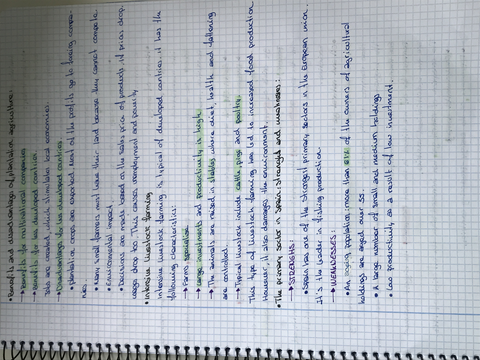 • Benefits and disadvantages of plantation agriculture:
→ Benefits for multinational companies
→ Benefits for the developed countries
Jobs are created, which stimulates local economies.
→ Disadvantages for the developed countries
• plantation crops are exported. Most of the profits go to foreign compa-
nies.
• Many small farmers must leave their land because they cannot compete.
• Environmental impact
• Decisions are made based on the sales price of products. If prices drop,
wages drop too. This causes unemployment and poverty.
• Intensive livestock farming
Intensive livestock farming is typical of developed countries. It has the
following characteristics:
→ Farms specialise
→ Large investments and productivity is high.
→ The animals are raised in stables, where diet, health and fattening
are controlled.
→ Typical livestock include cattle, pigs and poultry.
This type of livestock farming has led to increased food production.
However, it also damages the environment.
• The primary sector in Spain: strengths and weaknesses:
→ STRENGTHS:
• Spain has one of the strongest primary sectors in the European Union.
It's the leader in fishing production.
→ WEAKNESSES:
• An ageing population, more than of the owners of agricultural
holdings are aged over 55.
• A large number of small and medium holdings.
• Low productivity, as a result of low investment.